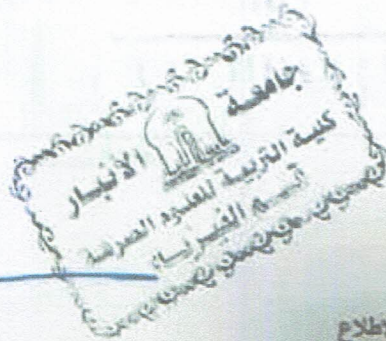 جامعة
الأنبار
كلية التربية للعلوم الصرفة
قسم الفيزياء
لاطلاع